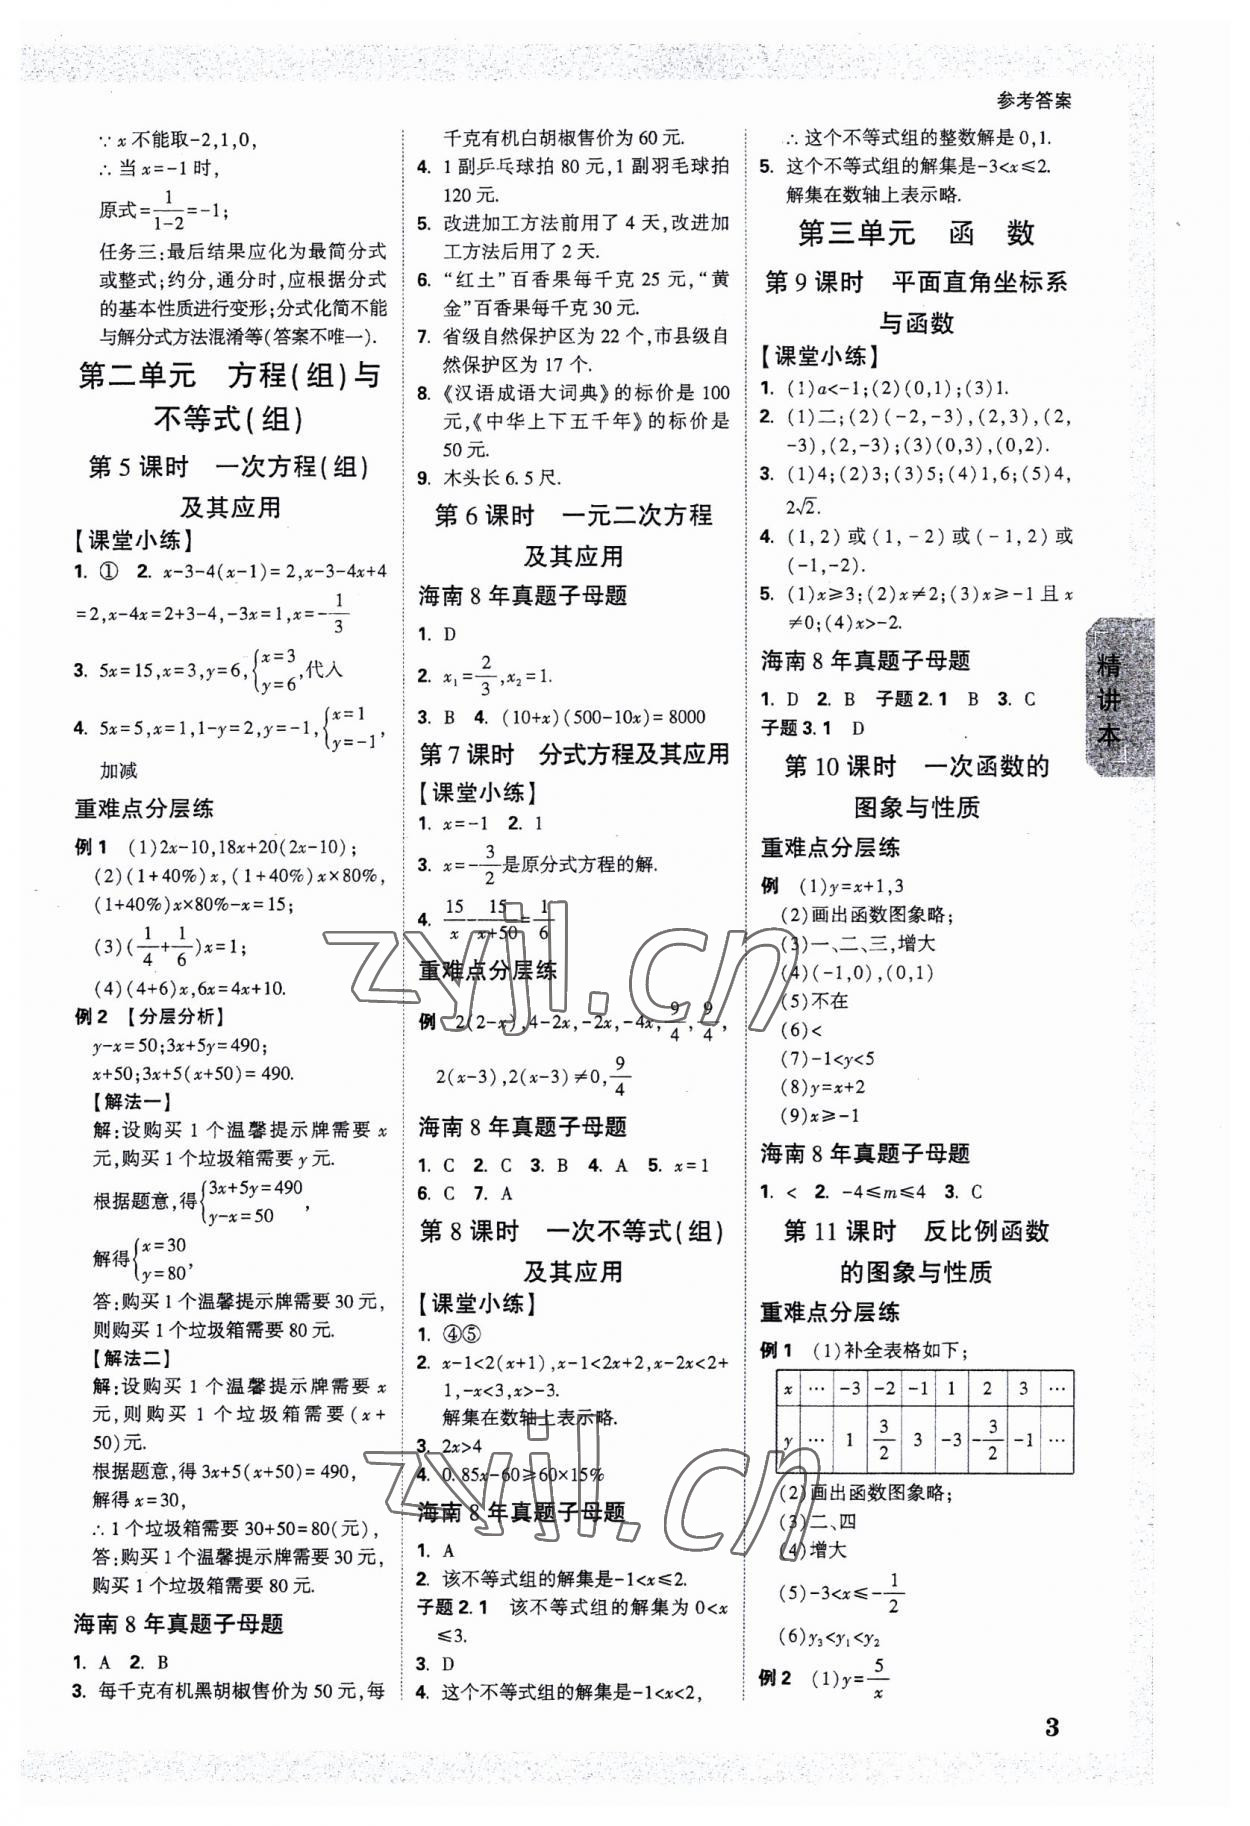 参考答案
∵x不能取-2,1,0,
∴当x=-1时,
原式=1/(1-2)=-1;
任务三:最后结果应化为最简分式
或整式;约分,通分时,应根据分式
的基本性质进行变形;分式化简不能
与解分式方法混淆等(答案不唯一).
第二单元 方程(组)与
不等式(组)
第5课时 一次方程(组)
及其应用
【课堂小练】
1. ① 2. x-3-4(x-1)=2,x-3-4x+4
=2,x-4x=2+3-4,-3x=1,x=-1/3
3. 5x=15,x=3,y=6,{x=3 y=6,代入
4. 5x=5,x=1,1-y=2,y=-1,{x=1 y=-1,
加减
重难点分层练
例1 (1)2x-10,18x+20(2x-10);
(2)(1+40%)x,(1+40%)x×80%,
(1+40%)x×80%-x=15;
(3)(1/4+1/6)x=1;
(4)(4+6)x,6x=4x+10.
例2 【分层分析】
y-x=50;3x+5y=490;
x+50;3x+5(x+50)=490.
【解法一】
解:设购买1个温馨提示牌需要x
元,购买1个垃圾箱需要y元.
根据题意,得{3x+5y=490 y-x=50,
解得{x=30 y=80,
答:购买1个温馨提示牌需要30元,
则购买1个垃圾箱需要80元.
【解法二】
解:设购买1个温馨提示牌需要x
元,则购买1个垃圾箱需要(x+
50)元.
根据题意,得3x+5(x+50)=490,
解得x=30,
∴1个垃圾箱需要30+50=80(元),
答:购买1个温馨提示牌需要30元,
购买1个垃圾箱需要80元.
海南8年真题子母题
1. A 2. B
3. 每千克有机黑胡椒售价为50元,每
千克有机白胡椒售价为60元.
4. 1副乒乓球拍80元,1副羽毛球拍
120元.
5. 改进加工方法前用了4天,改进加
工方法后用了2天.
6. “红土”百香果每千克25元,“黄
金”百香果每千克30元.
7. 省级自然保护区为22个,市县级自
然保护区为17个.
8.《汉语成语大词典》的标价是100
元,《中华上下五千年》的标价是
50元.
9. 木头长6.5尺.
第6课时 一元二次方程
及其应用
海南8年真题子母题
1. D
2. x₁=2/3,x₂=1.
3. B 4. (10+x)(500-10x)=8000
第7课时 分式方程及其应用
【课堂小练】
1. x=-1 2. 1
3. x=-3/2是原分式方程的解.
4. 15/x-15/(x+50)=1/6
重难点分层练
例 2(2-x),4-2x,-2x,-4x,9/4,9/4,
2(x-3),2(x-3)≠0,9/4
海南8年真题子母题
1. C 2. C 3. B 4. A 5. x=1
6. C 7. A
第8课时 一次不等式(组)
及其应用
【课堂小练】
1. ④⑤
2. x-1<2(x+1),x-1<2x+2,x-2x<2+
1,-x<3,x>-3.
解集在数轴上表示略.
3. 2x>4
4. 0.85x-60≥60×15%
海南8年真题子母题
1. A
2. 该不等式组的解集是-1<x≤2.
子题2.1 该不等式组的解集为0<x
≤3.
3. D
4. 这个不等式组的解集是-1<x<2,
∴这个不等式组的整数解是0,1.
5. 这个不等式组的解集是-3<x≤2.
解集在数轴上表示略.
第三单元 函 数
第9课时 平面直角坐标系
与函数
【课堂小练】
1. (1)a<-1;(2)(0,1);(3)1.
2. (1)二;(2)(-2,-3),(2,3),(2,
-3),(2,-3);(3)(0,3),(0,2).
3. (1)4;(2)3;(3)5;(4)1,6;(5)4,
2√2.
4. (1,2)或(1,-2)或(-1,2)或
(-1,-2).
5. (1)x≥3;(2)x≠2;(3)x≥-1且x
≠0;(4)x>-2.
海南8年真题子母题
1. D 2. B 子题2.1 B 3. C
子题3.1 D
第10课时 一次函数的
图象与性质
重难点分层练
例 (1)y=x+1,3
(2)画出函数图象略;
(3)一、二、三,增大
(4)(-1,0),(0,1)
(5)不在
(6)<
(7)-1<y<5
(8)y=x+2
(9)x≥-1
海南8年真题子母题
1. < 2. -4≤m≤4 3. C
第11课时 反比例函数
的图象与性质
重难点分层练
例1 (1)补全表格如下;
x … -3 -2 -1 1 2 3 …
y … 1 3/2 3 -3 -3/2 -1 …
(2)画出函数图象略;
(3)二、四
(4)增大
(5)-3<x≤-1/2
(6)y₃<y₁<y₂
例2 (1)y=5/x
精讲本
3
zyjl.cn
zyjl.cn